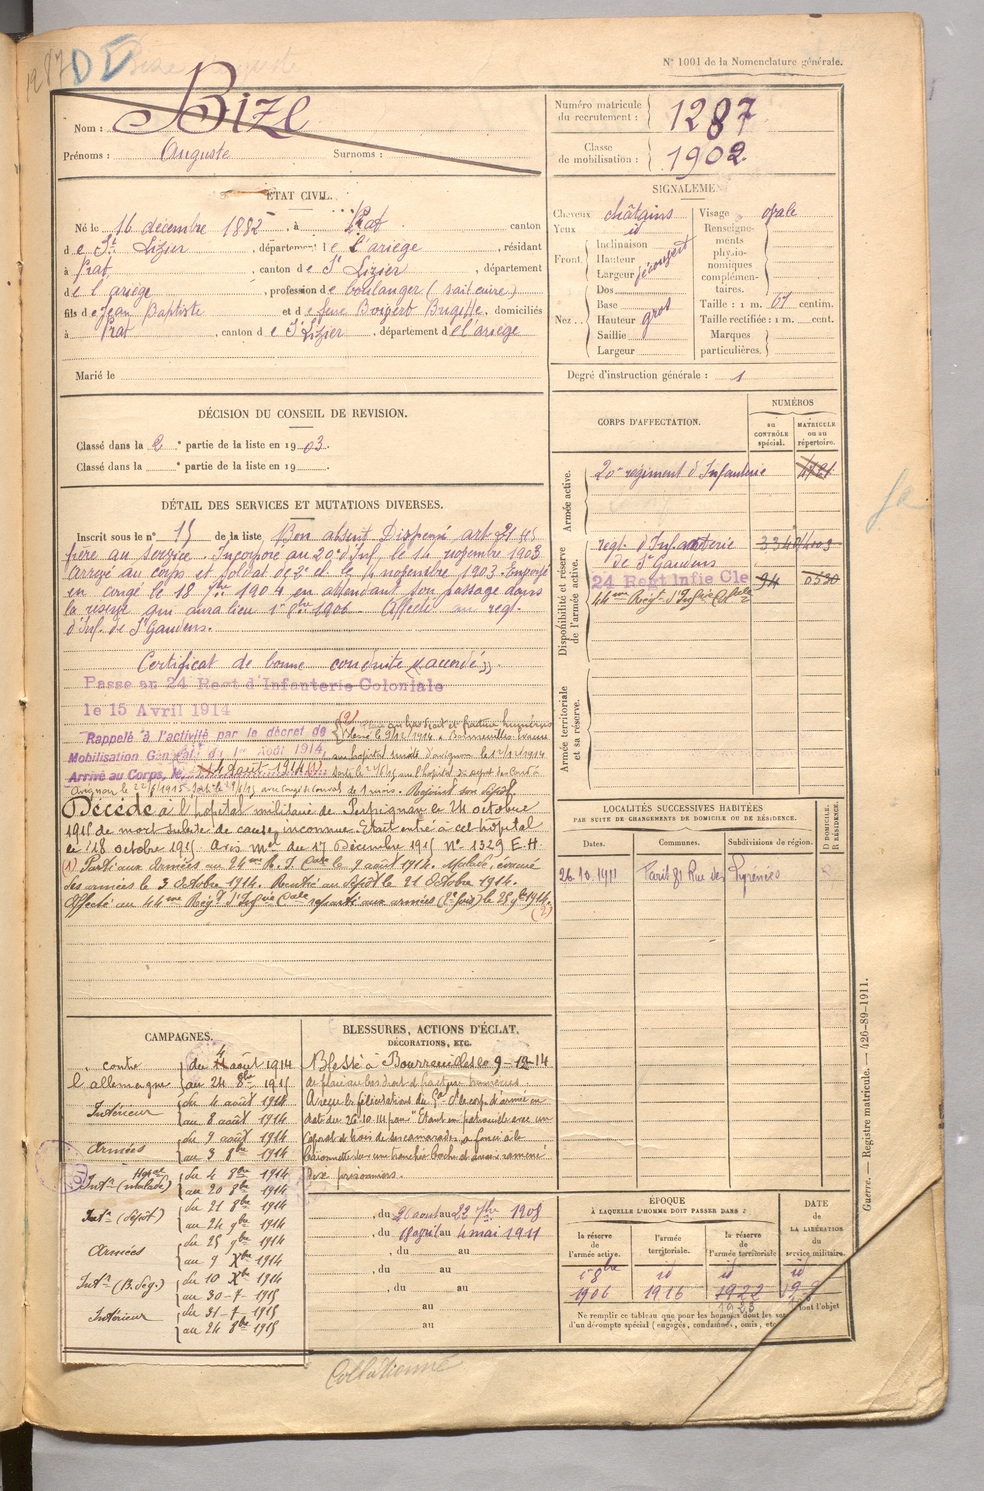 1287
N° 1001 de la Nomenclature générale.
Nom : Bize
Prénoms : Auguste Surnoms :
Numéro matricule du recrutement : 1287
Classe de mobilisation : 1902
ÉTAT CIVIL.
Né le 16 décembre 1882, à Prat canton
de St Lizier, département de l'ariège, résidant
à Prat, canton de St Lizier, département
de l'ariège, profession de boulanger (sait cuire)
fils de Jean Baptiste et de feue, domiciliés
à Prat, canton de St Lizier, département de l'ariège
Marié le
SIGNALEMENT
Cheveux châtains
Yeux id
Front Inclinaison
Hauteur
Largeur découvert
Nez Dos
Base
Hauteur gros
Saillie
Largeur
Visage ovale
Renseignements physionomiques complémentaires.
Taille : 1 m. 67 centim.
Taille rectifiée : 1 m. cent.
Marques particulières.
Degré d'instruction générale : 1
DÉCISION DU CONSEIL DE REVISION.
Classé dans la 2e partie de la liste en 1903.
Classé dans la e partie de la liste en 19 .
DÉTAIL DES SERVICES ET MUTATIONS DIVERSES.
Inscrit sous le n° 15 de la liste Bon absent Dispensé art. 21
frère au service. Incorporé au 20e d'Inf. le 14 novembre 1903
Arrivé au corps et soldat de 2e cl. le 14 novembre 1903. Envoyé
en congé le 18 7bre 1904 en attendant son passage dans
la réserve qui aura lieu 1er 8bre 1906. Affecté au regt.
d'Inf. de St Gaudens.
Certificat de bonne conduite "accordé".
Passé au 24 Regt d'Infanterie Coloniale
le 15 Avril 1914
Rappelé à l'activité par le décret de
Mobilisation Générale du 1er Août 1914
Arrivé au Corps, le 4 août 1914 (1)
Décédé à l'hôpital militaire de Perpignan le 24 octobre
1915 de mort subite de cause inconnue. Etait entré à cet hôpital
le 18 octobre 1915. Avis mel du 17 Décembre 1915 N° 1329 E.H.
(1) Parti aux armées au 24me R. I. Cale le 9 août 1914. Malade, évacué
des armées le 3 Octobre 1914. Rentré au Dépôt le 21 Octobre 1914.
Affecté au 44me Régt d'Infie Cale reparti aux armées (2e fois) le 25 9bre 1914.
(2)
CORPS D'AFFECTATION.
NUMÉROS
au CONTRÔLE spécial.
MATRICULE ou au répertoire.
Armée active.
20e régiment d'Infanterie
Disponibilité et réserve de l'armée active.
regt. d'Infanterie 334
de St Gaudens
24 Regt Infie Cle 94 0530
44me Régt d'Infie Cale
Armée territoriale et sa réserve.
LOCALITÉS SUCCESSIVES HABITÉES
PAR SUITE DE CHANGEMENTS DE DOMICILE OU DE RÉSIDENCE.
Dates. Communes. Subdivisions de région. D DOMICILE. R RÉSIDENCE.
26.10.1911 Paris 81 Rue des Pyrénées
CAMPAGNES.
contre l'allemagne du 4 août 1914
au 24 8bre 1915
Intérieur du 4 août 1914
au 8 août 1914
Armées du 9 août 1914
au 3 8bre 1914
Intr (malade) Hpal du 4 8bre 1914
au 20 8bre 1914
Intr (Dépôt) du 21 8bre 1914
au 24 9bre 1914
Armées du 25 9bre 1914
au 9 Xbre 1914
Intr (B. Ség.) du 10 Xbre 1914
au 30-7-1915
Intérieur du 31-7-1915
au 24 8bre 1915
BLESSURES, ACTIONS D'ÉCLAT,
DÉCORATIONS, ETC.
Blessé à Bourreuilles le 9-12-14
de plaie au bras droit et fracture humérus.
A reçu les félicitations du Gal Ct le corps d'armée en
date du 26.10.14 pour "Etant en patrouille avec un
Caporal et trois de ses camarades, a foncé à la
baïonnette sur une tranchée boche et avoir ramené
dix prisonniers.
, du 2 août au 22 7bre 1908
, du 18 avril au 4 mai 1911
, du au
, du au
, du au
au
au
ÉPOQUE
À LAQUELLE L'HOMME DOIT PASSER DANS :
la réserve de l'armée active. l'armée territoriale. la réserve de l'armée territoriale
DATE de LA LIBÉRATION du service militaire.
1er 8bre id id id
1906 1916 1922
1928
Ne remplir ce tableau que pour les hommes dont les
d'un décompte spécial (engagés, condamnés, omis, etc
font l'objet
Guerre. — Registre matricule. — 426-89-1911.
Collationné